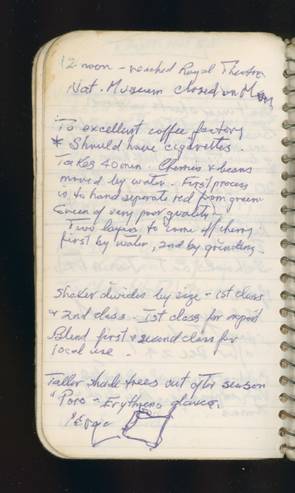 12 noon - reached Royal Theatre
Nat. Museum closed on Mon
To excellent coffee factory
* Should have cigarettes.
Takes 40 min. Cherries & beans
moved by water. First process
is to hand separate red from green
Green of very poor quality.
Two layers to come off cherry
first by water, 2nd by grinding.
Shaker divides by size - 1st class
& 2nd class. 1st class for export
Blend first & second class for
local use.
Taller shade trees out of season
"Poro - Erythrina glauca.